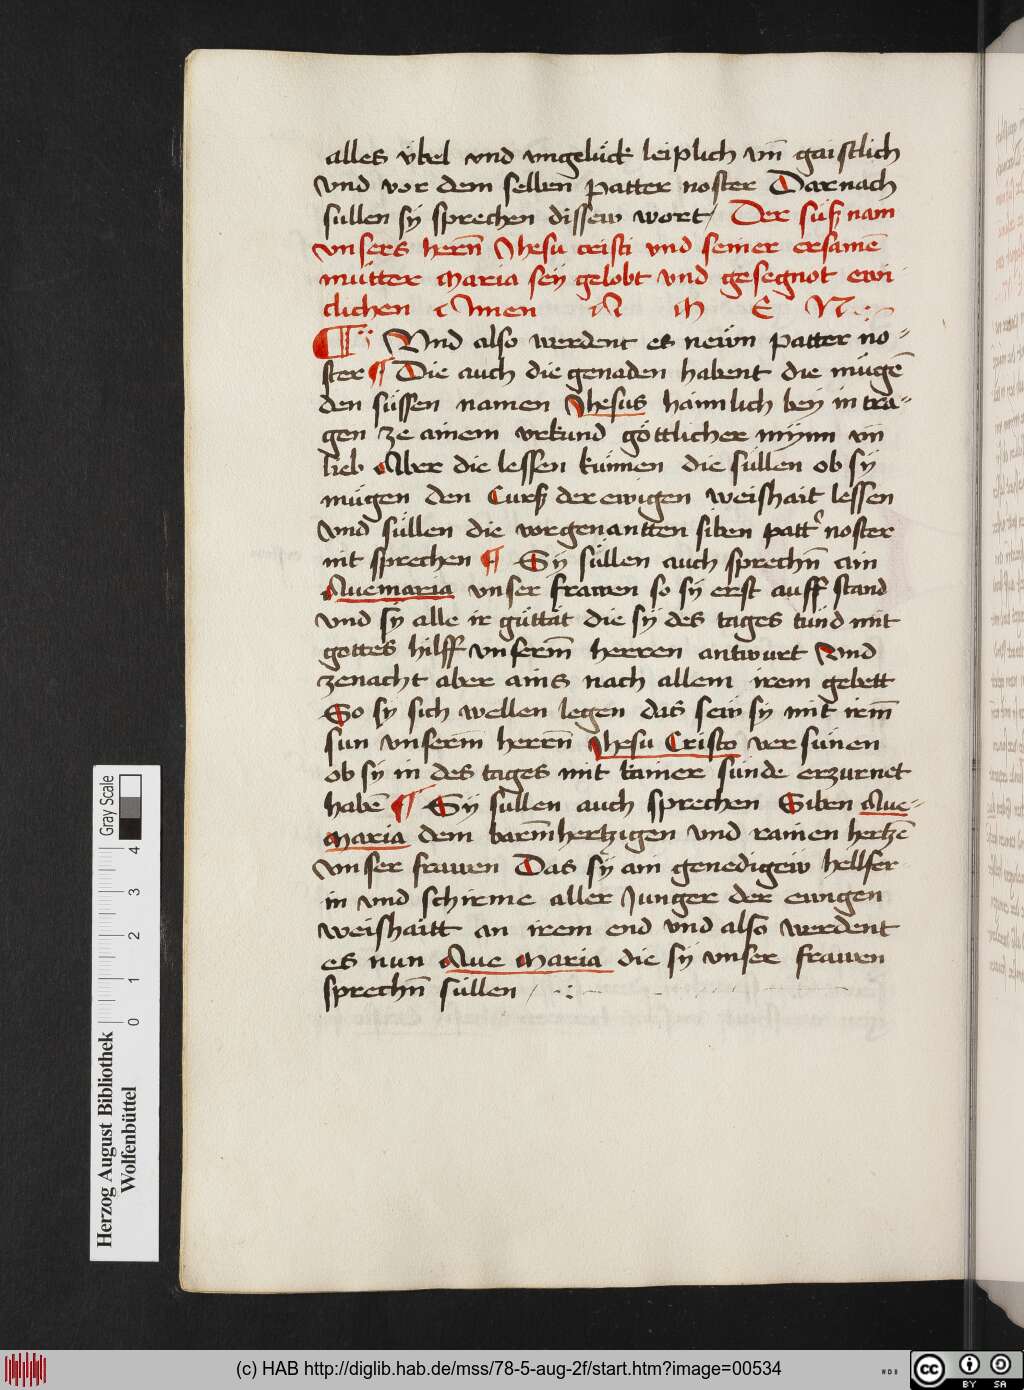 alles v̈bel vnd vngelück leiplich vn̄ gaistlich
vnd vor dem selben patter noster Darnach
süllen sÿ sprechen dissew wort / Der süß nam
vnsers hern̄ Jhesu cristi vnd seiner ersamē
mütter maria seÿ gelobt vnd gesegnot ewi
clichen Amen A M E N
¶ Vnd also werdent es newn patter no-
ster ¶ Die auch die genaden habent die mügē
den süssen namen Jhesus haimlich beÿ in tra-
gen ze ainem vrkund göttlicher mÿnn vn̄
lieb Aber die lessen künnen die süllen ob sÿ
mügen den Curß der ewigen weishait lessen
vnd süllen die vorgenantten siben patt' noster
nit sprechen ¶ Sÿ süllen auch sprechn̄ ain
Auemaria vnser frawen so sÿ erst auff stand
vnd sÿ alle ir güttät die sÿ des tages tünd mit
gottes hilff vnserm̄ herren antwurt Vnd
zenacht aber ains nach allem irem gebett
So sÿ sich wellen legen das sew sÿ mit irm̄
sun vnserm herrn̄ Jhesu Cristo versünen
ob sÿ in des tages mit kainer sünde erzurnet
habē ¶ Sÿ süllen auch sprechen Siben Aue-
maria dem barm̄hertzigen vnd rainen hertzē
vnser frawen Das sÿ ain genedigew hellfer
in vnd schirme aller Junger der ewigen
weishaitt an irem end vnd also werdent
es nun Aue maria die sÿ vnser frawen
sprechn̄ süllen
Gray Scale
0 1 2 3 4
Herzog August Bibliothek
Wolfenbüttel
(c) HAB http://diglib.hab.de/mss/78-5-aug-2f/start.htm?image=00534
cc BY SA